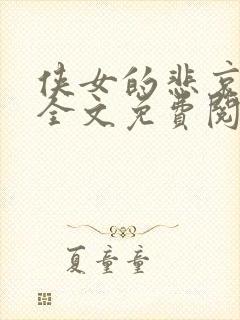 侠女的悲哀
全文免費閱
夏童童